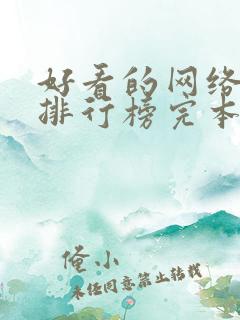 好看的网络
排行榜完本
俺小
未经同意禁止转载